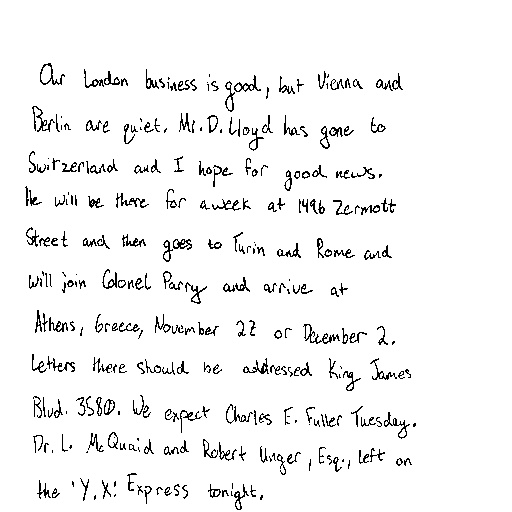 Our London business is good, but Vienna and
Berlin are quiet. Mr. D. Lloyd has gone to
Switzerland and I hope for good news.
He will be there for a week at 1496 Zermott
Street and then goes to Turin and Rome and
will join Colonel Parry and arrive at
Athens, Greece, November 27 or December 2.
Letters there should be addressed King James
Blvd. 3580. We expect Charles E. Fuller Tuesday.
Dr. L. McQuaid and Robert Unger, Esq., left on
the 'Y.X.' Express tonight.